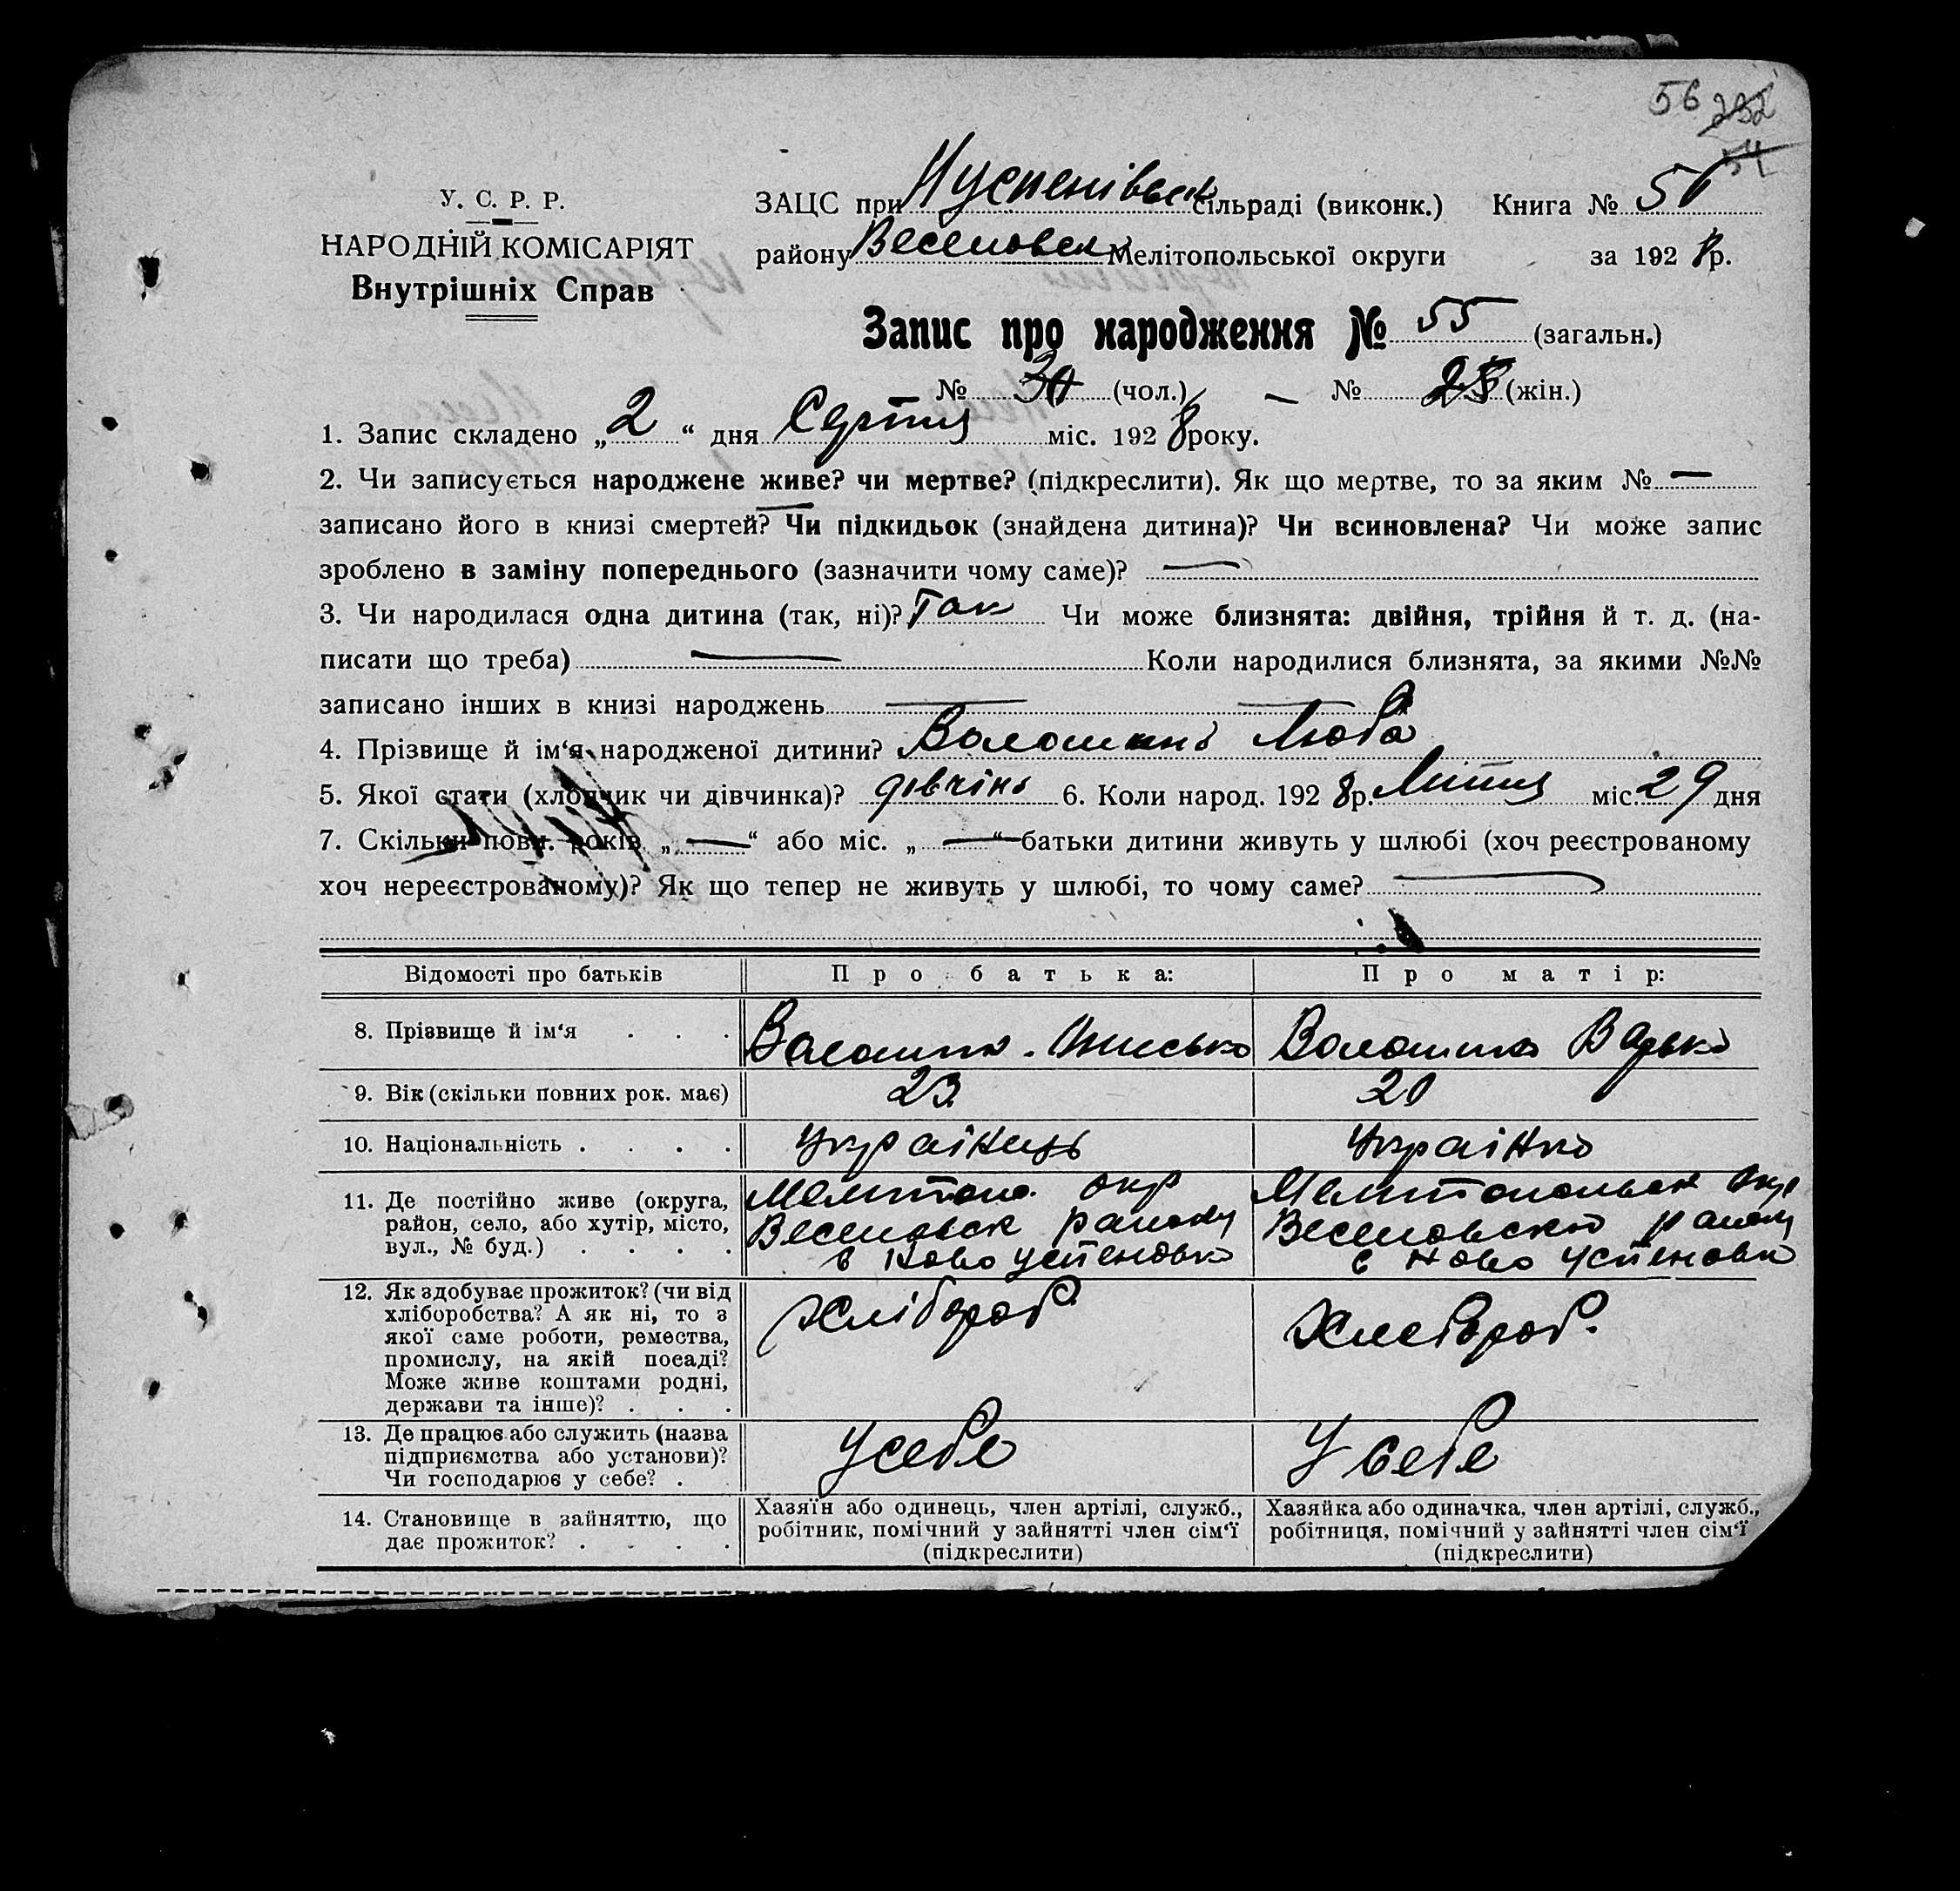 56 232
54
У. С. Р. Р.
НАРОДНІЙ КОМІСАРІЯТ
Внутрішніх Справ
ЗАЦС при Нуспенівськ сільраді (виконк.) Книга №
району Веселовськ Мелітопольської округи за 1928 р.
Запис про народження № 55 (загальн.)
№ (чол.) — № (жін.)
1. Запис складено „ 2 “ дня Серпня міс. 1928 року.
2. Чи записується народжене живе? чи мертве? (підкреслити). Як що мертве, то за яким № —
записано його в книзі смертей? Чи підкидьок (знайдена дитина)? Чи всиновлена? Чи може запис
зроблено в заміну попереднього (зазначити чому саме)? —
3. Чи народилася одна дитина (так, ні)? Так Чи може близнята: двійня, трійня й т. д. (на-
писати що треба) — Коли народилися близнята, за якими №№
записано інших в книзі народжень — —
4. Прізвище й ім‘я народженої дитини? Волошина Люба
5. Якої стати (хлопчик чи дівчинка)? дівчіна 6. Коли народ. 1928 р. Липня міс. 29 дня
7. Скільки повн. років „ — “ або міс. „ — “ батьки дитини живуть у шлюбі (хоч реєстрованому
хоч нереєстрованому)? Як що тепер не живуть у шлюбі, то чому саме? —
Відомості про батьків Про батька: Про матір:
8. Прізвище й ім‘я . . . Волошин Волошина
9. Вік (скільки повних рок. має) 23 20
10. Національність . . . . Українець Українка
11. Де постійно живе (округа,
район, село, або хутір, місто,
вул., № буд.) . . . .
Мелитопо. окр
Веселовськ району
с Ново Успеновка
Мелитопольськ Окр
Веселовського району
с Ново Успеновка
12. Як здобуває прожиток? (чи від
хліборобства? А як ні, то з
якої саме роботи, ремества,
промислу, на якій посаді?
Може живе коштами родні,
держави та інше)? . . .
Хлібороб
Хлебороб.
13. Де працює або служить (назва
підприємства або установи)?
Чи господарює у себе? .
У себе
У себе
14. Становище в зайняттю, що
дає прожиток? . . . .
Хазяїн або одинець, член артілі, служб.,
робітник, помічний у зайнятті член сім‘ї
(підкреслити)
Хазяйка або одиначка, член артілі, служб.,
робітниця, помічний у зайнятті член сім‘ї
(підкреслити)